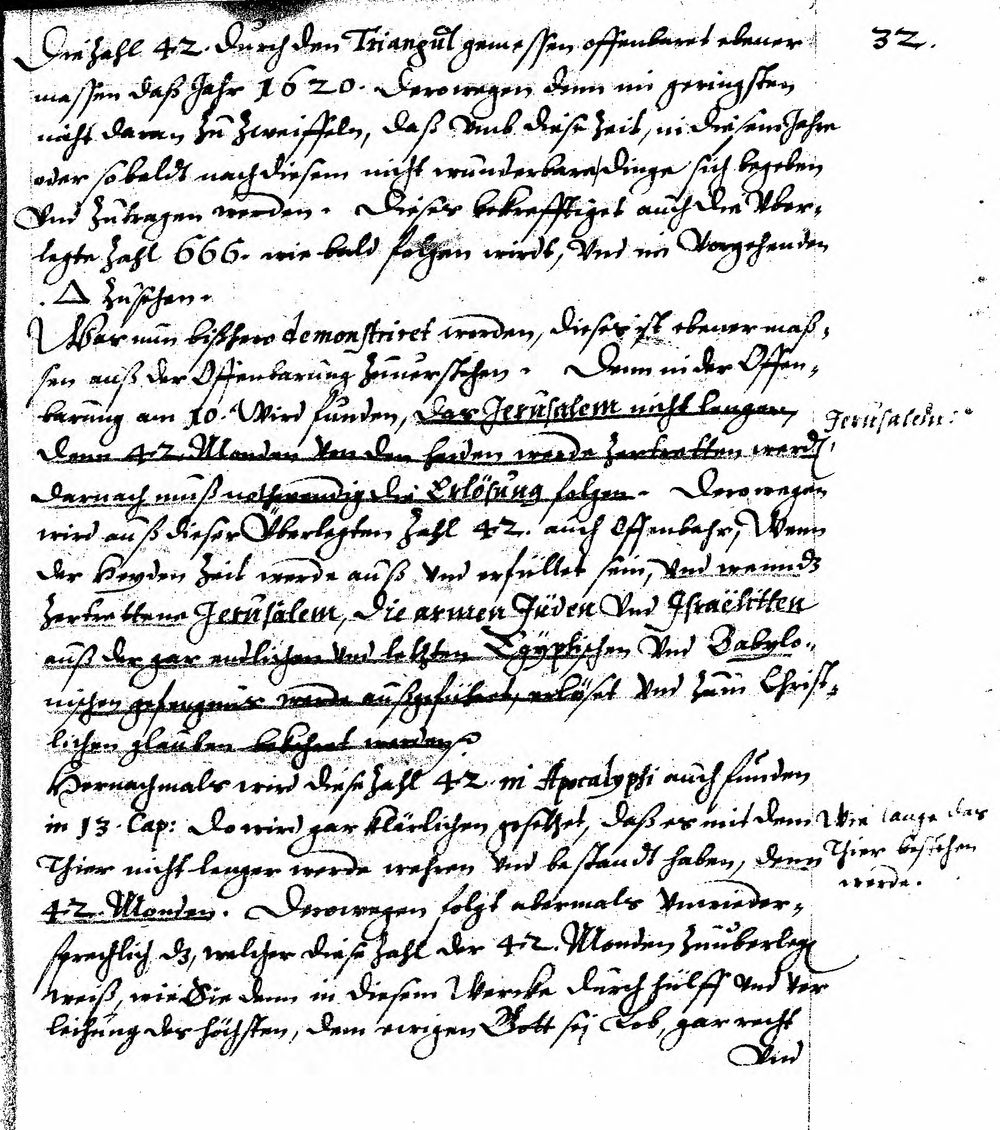 32.
Die Zahl 42. durch den Triangul gemessen offenbaret ebener
massen daß Jahr 1620. Derowegen denn im geringsten
nicht daran zu zweiffeln, daß vmb diese Zeit, in diesem Jahre
oder sobaldt nach diesem nicht wunderbare dinge sich begeben
Vnd zutragen werden. Dieses bekrefftiget auch die Vber-
legte Zahl 666. wie bald folgen wirdt, Vnd im Vorgehenden
. Δ zusehen.
Was nun bißhero demonstriret worden, dieses ist ebener maß-
sen auß der Offenbarung zuuerstehen. Denn in der Offen-
barung am 10. Wird funden, das Jerusalem nicht lenger,
Jerusalem.
denn 42. Monden von den heiden werde zertretten werdē,
darnach muß nothwendig die Erlösung folgen. Derowegen
wird auß dieser Vberlegten Zahl 42. auch Offenbahr, Wenn
der Heyden Zeit werde auß Vnd erfüllet sein, Vnd wenn dz
zertrettene Jerusalem, die armen Jüden Vnd Israëlitten
auß der gar endlichen vnd letzten Egyptischen Vnd Babylo-
nischen gefengnis werde außgeführet, erlöset Vnd zum Christ-
lichen glauben bekehret werden?
Hernachmals wird diese Zahl 42 in Apocalypsi auch funden
in 13. Cap: do wird gar klärlichen gesetzet, daß es mit dem
Wie lange das
Thier nicht lenger werde wehren Vnd bestandt haben, denn
Thier bestehen
werde.
42. Monden. Derowegen folgt abermals Vnwieder-
sprechlich dz, welcher diese Zahl der 42. Monden zuuberlegē
weiß, wie Sie denn in diesem Wercke durch hülff Vnd ver
leihung des höchsten, dem ewigen Gott sej Lob, gar recht
Vnd